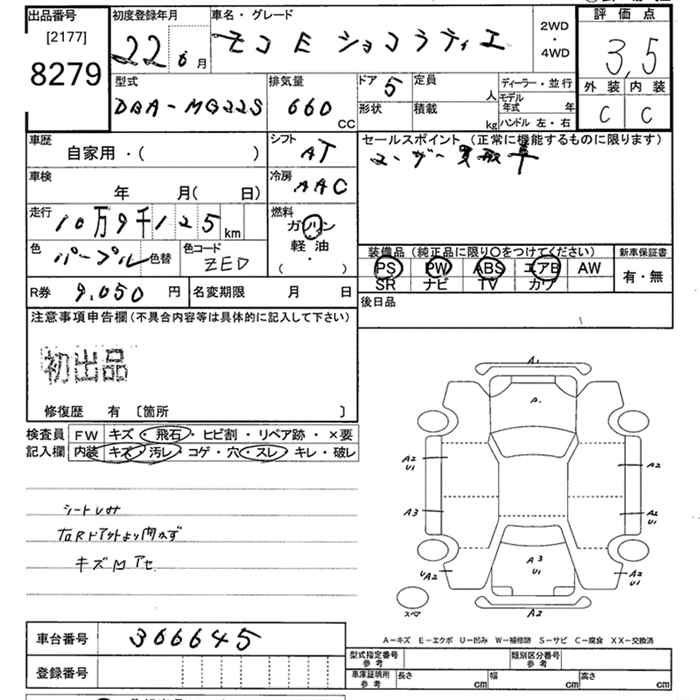 出品番号
[2177]
8279
初度登録年月
22 6 月
車名・グレード
モコ E ショコラティエ
2WD
・
4WD
評価点
3.5
外装 内装
C C
型式
DBA-MG22S
排気量
660
CC
ドア 5
形状
定員
人
積載
kg
ディーラー・並行
モデル年式 年
ハンドル 左・右
車歴
自家用・( )
シフト
AT
セールスポイント(正常に機能するものに限ります)
ユーザー買取車
車検
年 月( 日)
冷房
AAC
走行
10万9千125 km
燃料
ガソリン
軽油
・
( )
色
パープル 色替
色コード
ZED
装備品(純正品に限り○をつけてください)
PS PW ABS エアB AW
SR ナビ TV カワ
新車保証書
有・無
R券 9,050 円
名変期限 月 日
後日品
注意事項申告欄(不具合内容等は具体的に記入して下さい)
初出品
修復歴 有 〔箇所 〕
検査員
記入欄
FW キズ・飛石・ヒビ割・リペア跡・×要
内装 キズ・汚レ・コゲ・穴・スレ・キレ・破レ
右Rドアウチより開かず
キズ M アセ
A1
A
A2
U1
A2
A3
A2
U1
A3
U1
UA2
A2
U1
A2
スペア
A-キズ E-エクボ U-凹み W-補修跡 S-サビ C-腐食 XX-交換済
車台番号
366645
登録番号
型式指定番号
参考
類別区分番号
参考
車庫証明用
参考
長さ cm
幅 cm
高さ cm